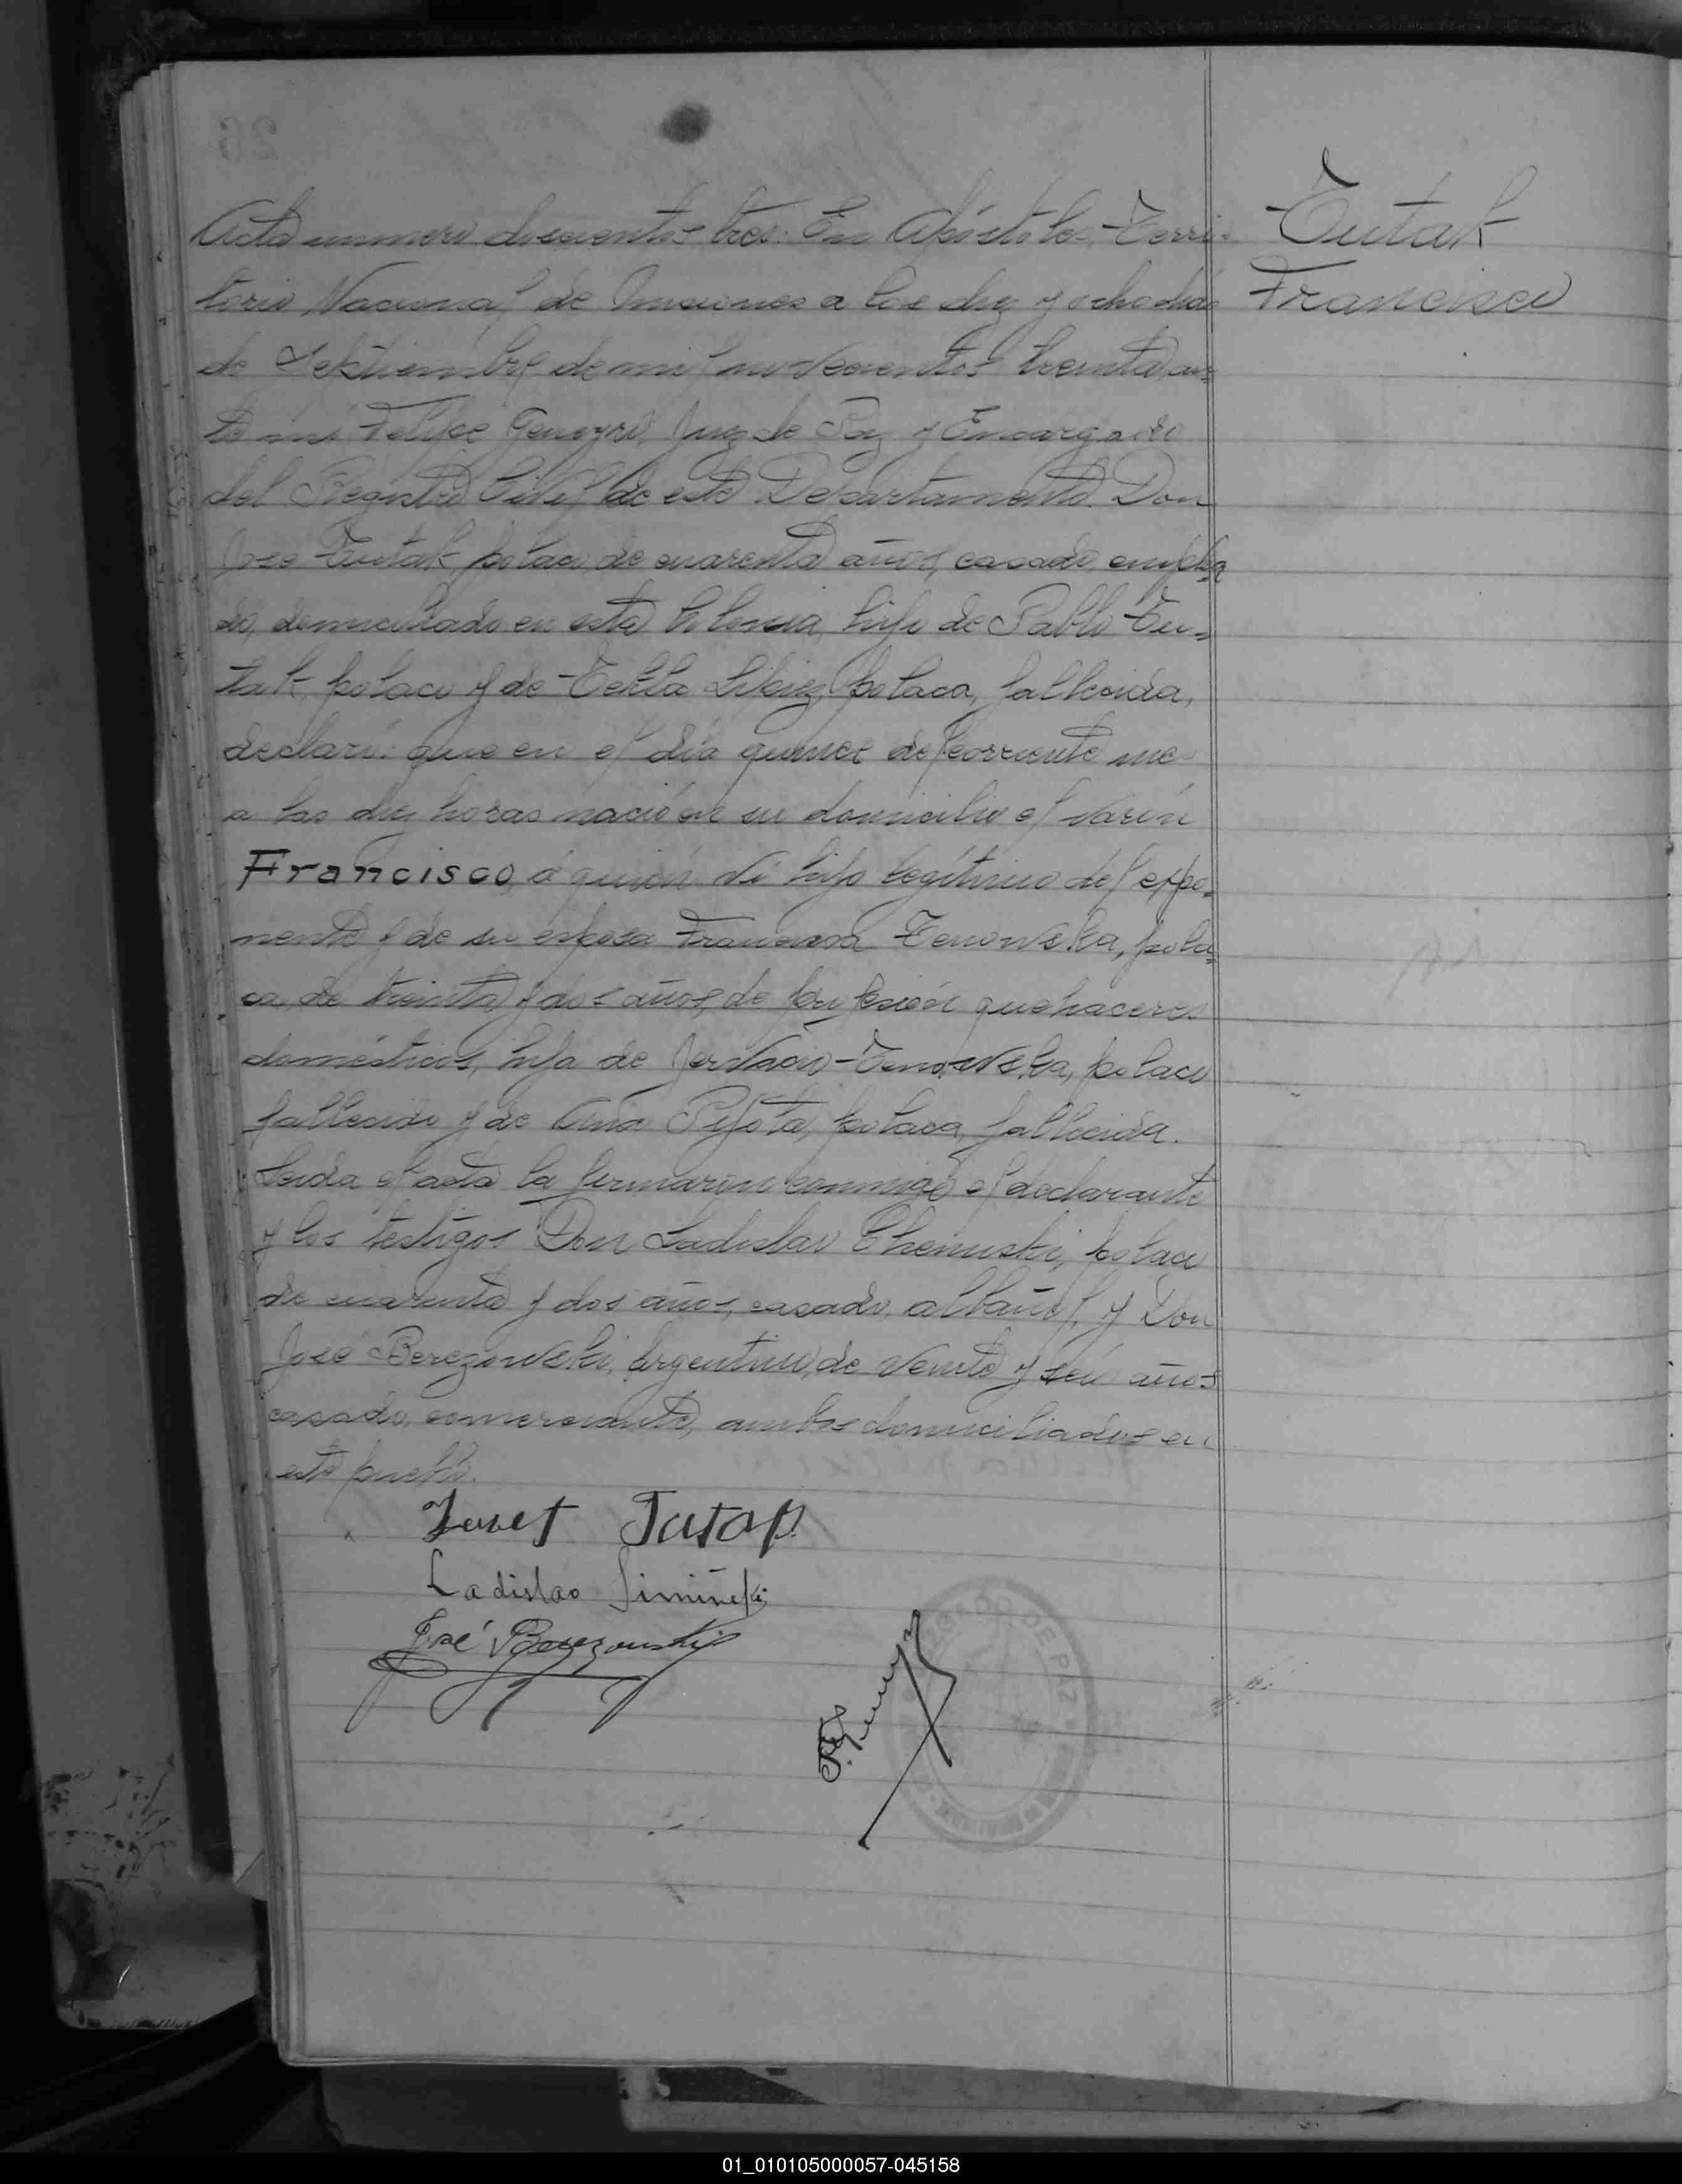 Tutak
Francisco
Acta numero doscientos tres: En Apóstoles, Terri-
torio Nacional de Misiones a los diez y ocho dias
de Septiembre de mil novecientos treinta, an-
te mí Felipe Juez de Paz y Encargado
del Registro Civil de este Departamento. Don
José Tutak polaco, de cuarenta años, casado, emplea
do, domiciliado en esta Colonia, hijo de Pablo Tu-
tak, polaco y de Tekla polaca, fallecida,
declaró: que en el día quince del corriente mes
a las diez horas nació en su domicilio el varón
Francisco, á quién ví hijo legítimo del expo-
nente y de su esposa Francisca Tenowska, pola-
ca, de treinta y dos años, de profesión quehaceres
domésticos, hija de Tenowska, polaco
fallecido y de Ana polaca, fallecida.
Leida el acta la firmaron conmigo el declarante
y los testigos Don Ladislao polaco
de cuarenta y dos años, casado, albañil, y Don
José Berezowski, argentino, de veinte y seis años
casado, comerciante, ambos domiciliados en
este pueblo.
Ladislao
José Berezouski
JUZGADO DE PAZ
01_010105000057-045158